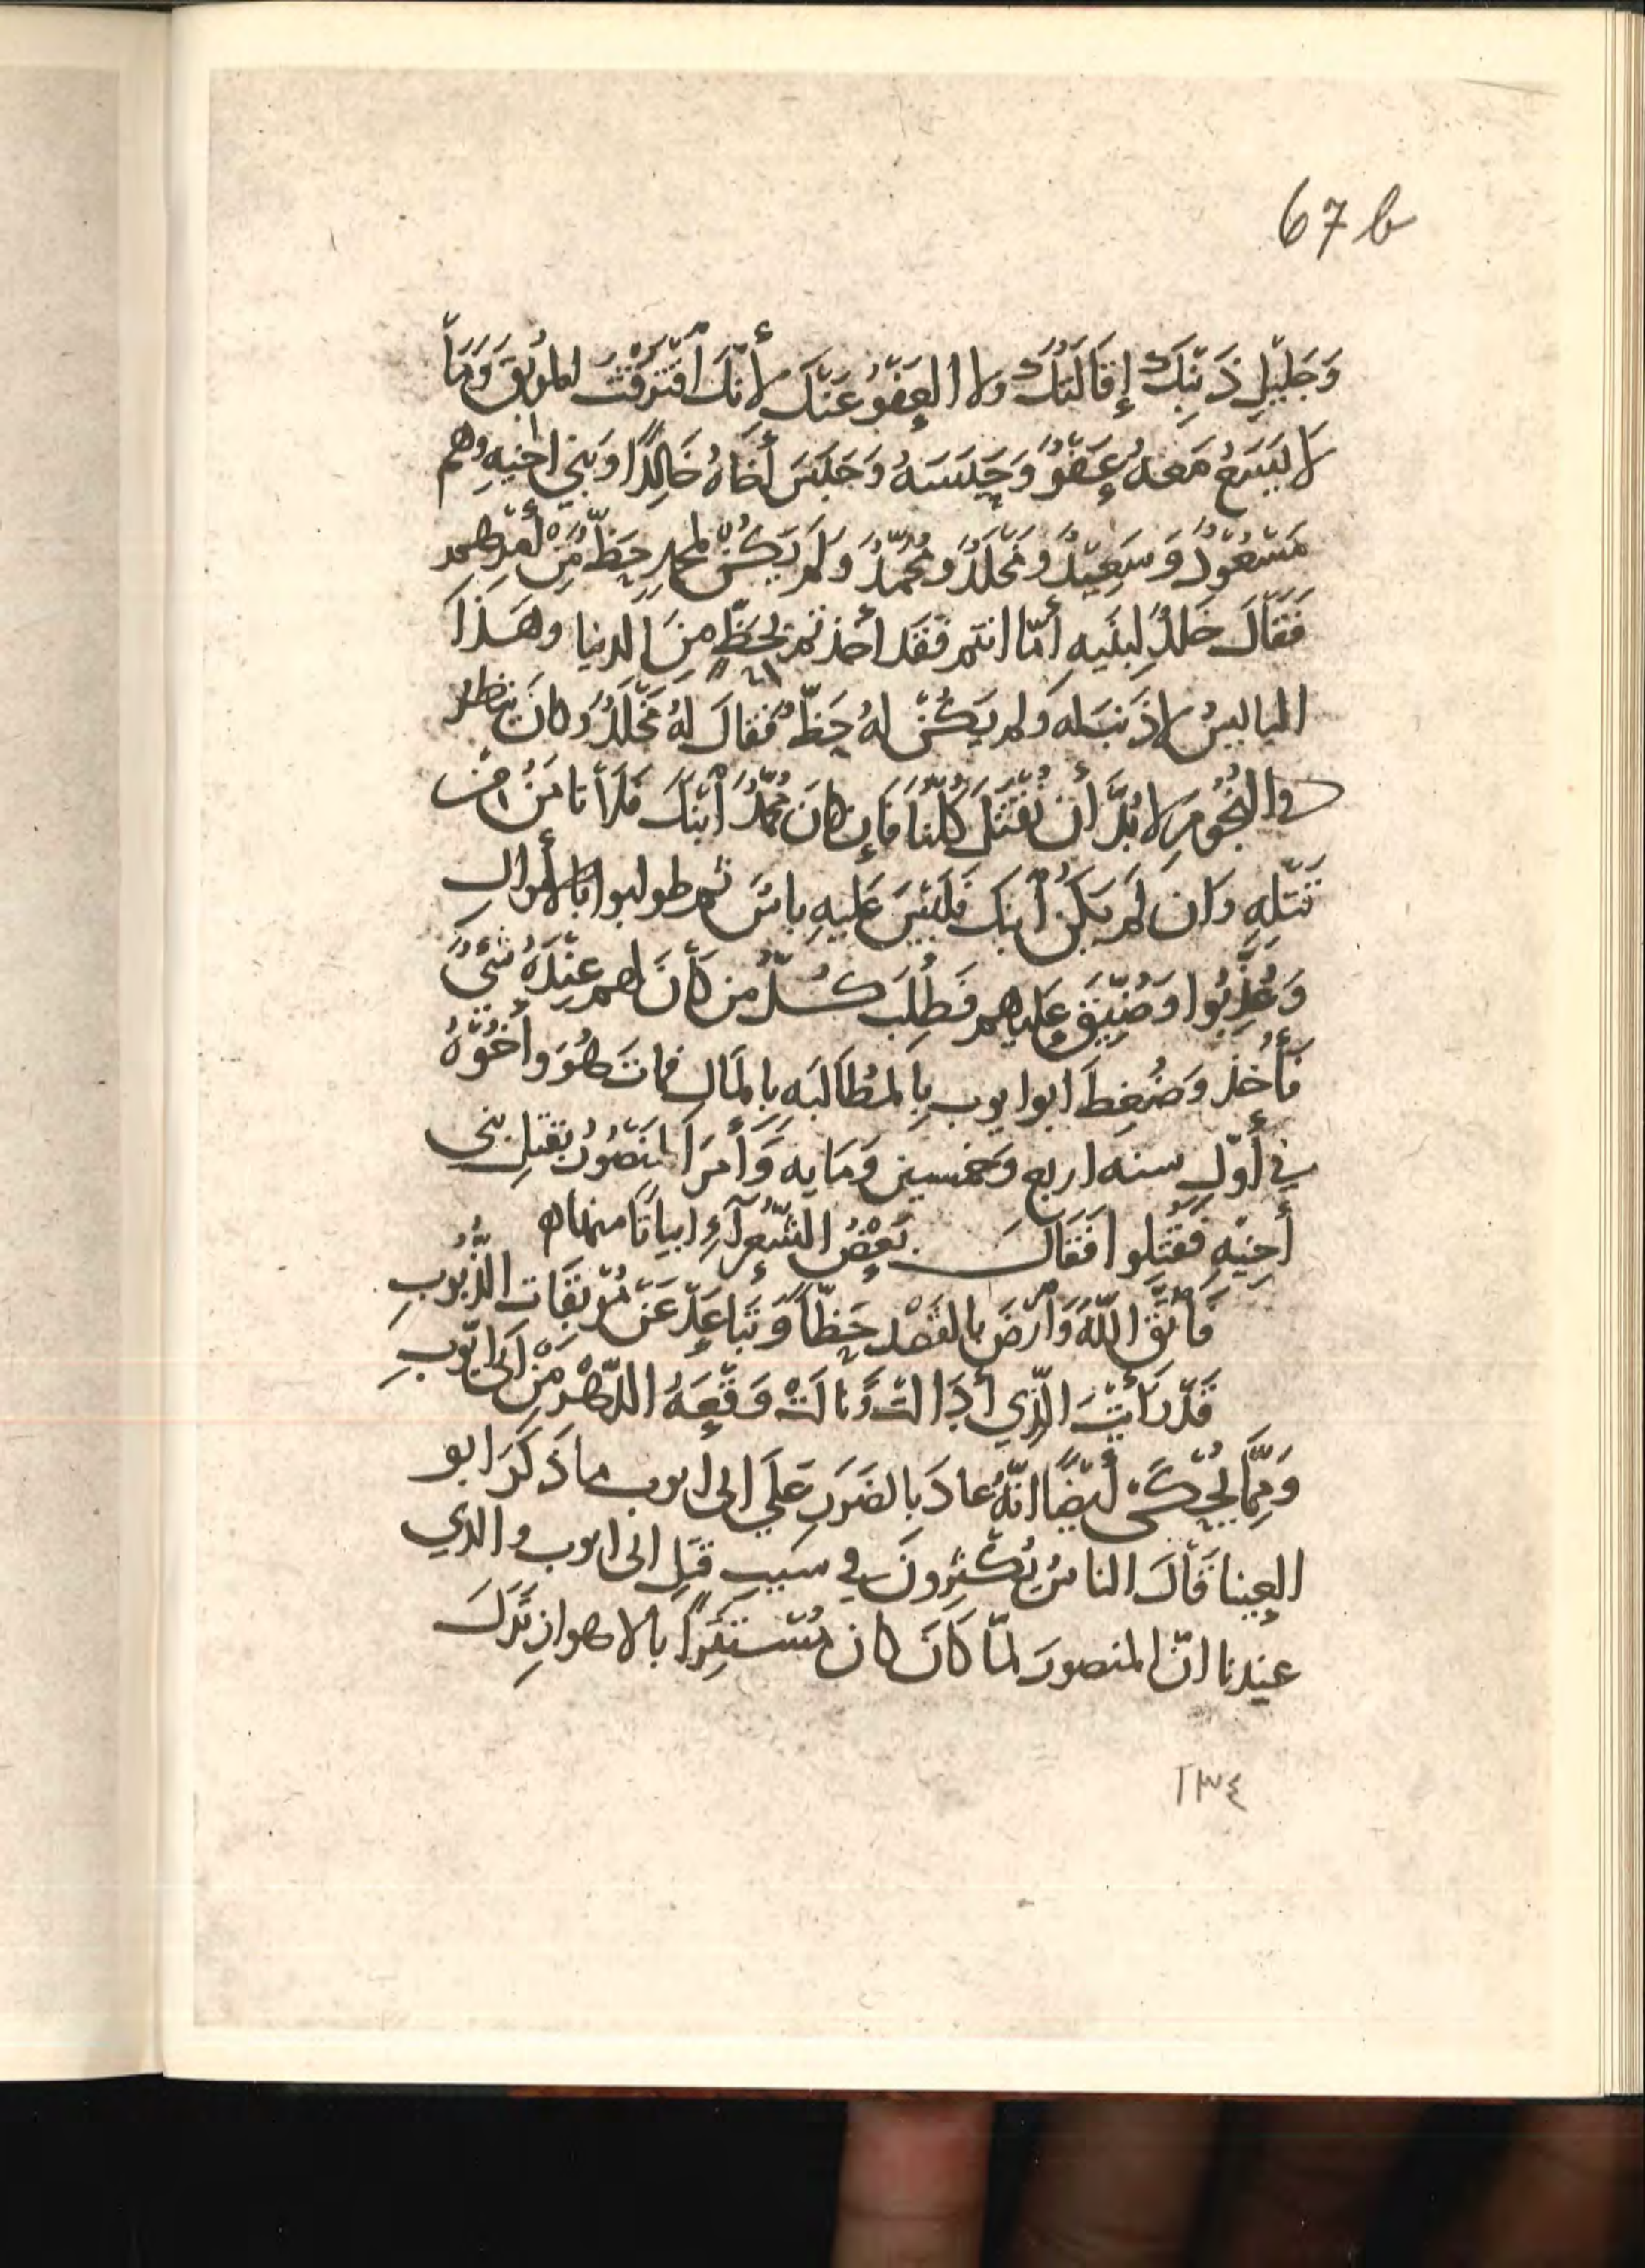 67 b
وَجَلِيْلِ ذَنْبِكَ إِقَالَتُكَ ولا العَفْوُ عَنْكَ لأَنَّكَ اقْتَرَفْتَ المُوْبِقَ وَمَا
لَا يَسَعُ مَعهُ عَفْوٌ وَحَبَسَهُ وَحَبَسَ أَخَاهُ خَالِدًا وَبَنِي اخيهِ وهم
مَسْعُوْدٌ وَسَعِيْدٌ وَمَخْلَدٌ وَمُحَمَّدٌ وَلَمْ يَكُنْ لمحمدٍ حَظٌّ مِنْ أَمْرِهِم
فَقَالَ خَلدٌ لِبَنيهِ أمّا انتم فقَد أخذتم بِحَظٍّ مِنَ الدنيا وهَذَا
البايسُ لا ذَنبَ له وَلم يَكُنْ لهُ حَظٌّ فَقالَ لهُ مَخْلَدٌ وَكانَ ينظر
في النجُومِ لا بُدَّ أن نُقْتَلَ كُلُّنَا فَإن كانَ مُحَمَّدٌ ابْنَكَ فَلَا تَامَنْ مِن
قَتْلِهِ وَان لَم يَكُنْ ابنكَ فَلَيْسَ عَليهِ باسٌ ثم طولبوا بالأموالِ
وَعُذِّبُوا وَضُيِّقَ عليهم فَطُلِبَ كُلُّ مَن كَانَ لهم عِنْدَهُ شَيْءٌ
فَأُخذَ وَضُغِطَ ابوايوب بِالمُطَالَبَه بِالمَال فماتَ هُوَ وأخُوْهُ
في أوّلِ سنه اربع وَخمسين وَمايه وَأَمَرَ المَنْصُوْرُ بقتلِ بَنِي
أَخِيْهِ فَقُتِلوا فَقَالَ بَعْضُ الشُّعَرآءِ ابياتًا منها ه
فَاتَّقِ اللهَ وَارْضَ بالقَصْدِ حَظًّا وَتَبَاعَدْ عَنْ مُوْبِقَات الذُّنُوبِ
قَدْ رَأَيْتَ الَّذِي أَدَالَتْ وَنَالَتْ وَقْعَهُ الدَّهْرِ مِنْ ابي ايُّوبِ
وَمِمَّا يُحْكَى أَيْضًا انّهُ عادَ بالضَرَرِ عَلَى ابى ايوب ما ذَكَرَ ابو
العينا قَالَ الناسُ يُكْثِرونَ في سَبَبِ قَتلِ ابى ايوب والذي
عندنا انّ المنصورَ لمّا كَانَ كان مُسْتَتِرًا بالاهوازِ نَزَلَ
٢٣٤